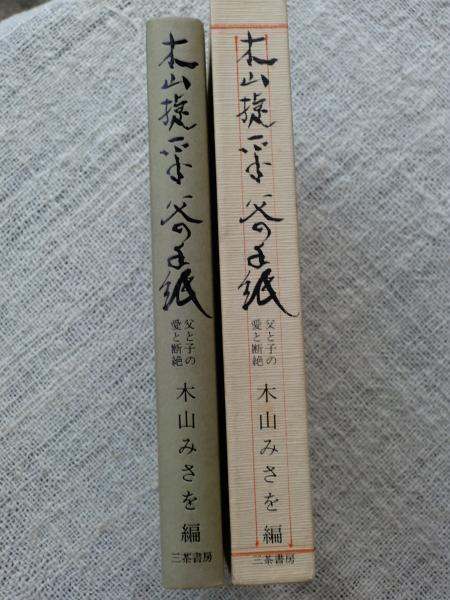 木山捷平 父の手紙
父と子の
愛と断絶
木山みさを 編
三茶書房
木山捷平 父の手紙
父と子の
愛と断絶
木山みさを 編
三茶書房